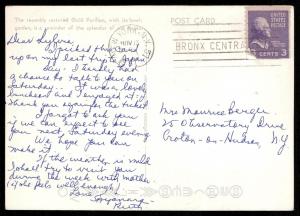 The recently restored Gold Pavilion, with its lovely
garden, is a reminder of the splendor of
POST CARD
BRONX CENTRAL
3 CENTS 3
Dear
I picked this card
up on my last trip to
day. I really had
a chance to talk to you on
Saturday. It was a
luncheon and I enjoyed it.
Thank you again for the ticket
I forgot to ask you if
we can expect to see
you next Saturday evening
We hope you can
make it.
If the weather is mild
I shall try to visit you
during the week with mother
(if she feels well enough)
Love,
Sayonara
Ruth
Mrs Maurice Berger
25 Observatory Drive
Croton-on-Hudson, NY